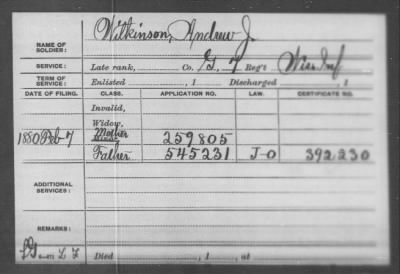 NAME OF SOLDIER: Wilkinson, Andrew J.
SERVICE: Late rank, Co. G, 7 Reg't Wis Inf
TERM OF SERVICE: Enlisted , 1 Discharged , 1
DATE OF FILING. CLASS. APPLICATION NO. LAW. CERTIFICATE NO.
Invalid,
Widow,
1880 Feb 7 Mother 259805
Father 545231 J-O 392230
ADDITIONAL SERVICES:
REMARKS:
Died , 1 , at